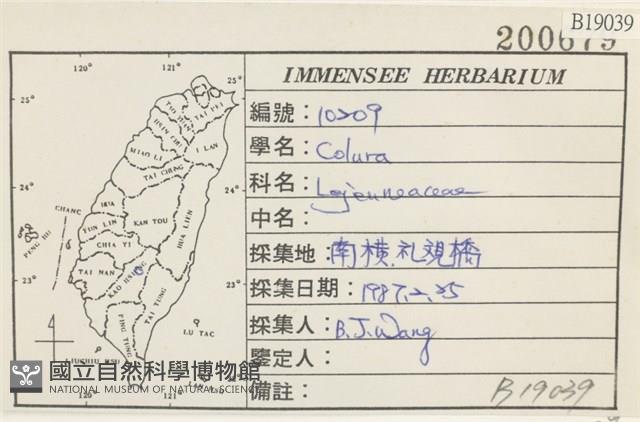 B19039
200679
IMMENSEE HERBARIUM
編號：10209
學名：Colura
科名：Lejeuneaceae
中名：
採集地：南橫.礼觀橋
採集日期：1987.2.25
採集人：B.J.Wang
鑒定人：
備註：
B19039
120° 121°
25° 25°
24° 24°
23° 23°
120° 121°
TAI PEI
TAO YUAN
HSIN CHU
I LAN
MIAO LI
TAI CHUNG
HUA
CHANG
NAN TOU
HUA LIEN
YUN LIN
PENG HU
CHIA YI
TAI NAN
KAO HSIUNG
TAI TUNG
PING TUNG
LU TAO
LIUCHIU HSU
國立自然科學博物館
NATIONAL MUSEUM OF NATURAL SCIENCE